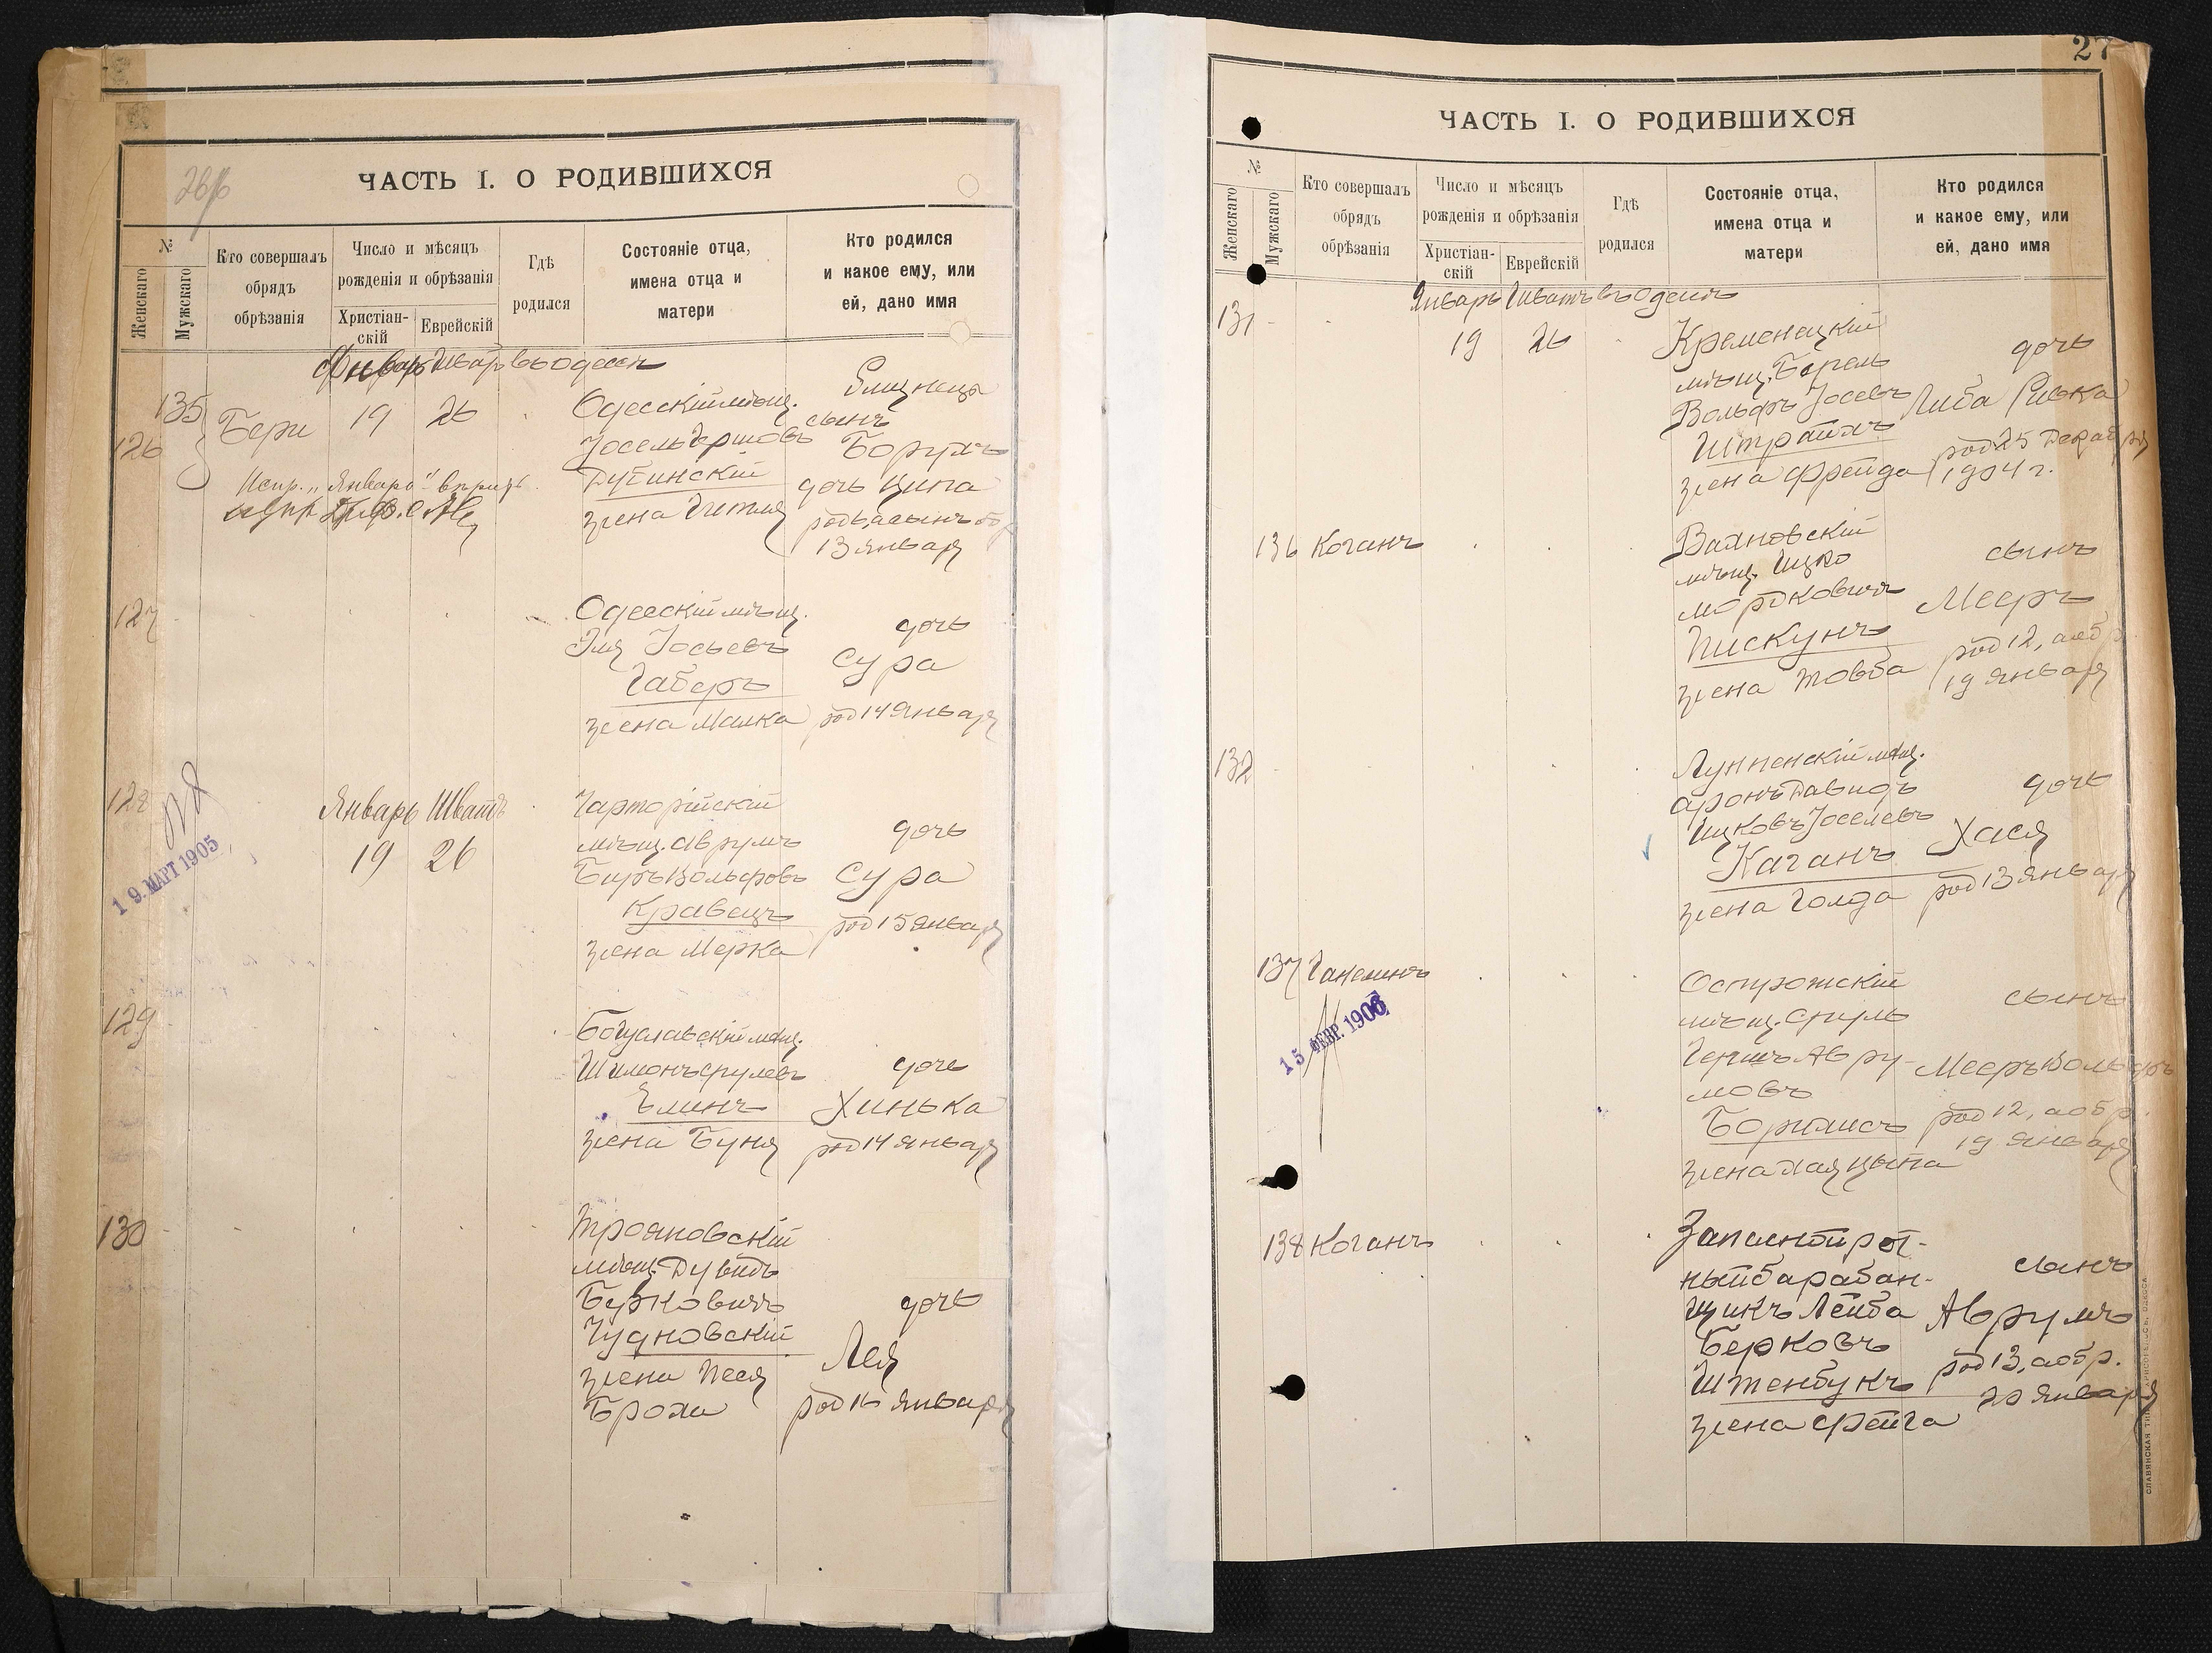 26/б
ЧАСТЬ I. О РОДИВШИХСЯ
№
Женскаго
Мужскаго
Кто совершалъ
обрядъ
обрѣзанія
Число и мѣсяцъ
рожденія и обрѣзанія
Христіан-
скій
Еврейскій
Гдѣ
родился
Состояніе отца,
имена отца и
матери
Кто родился
и какое ему, или
ей, дано имя
въ Одессѣ
135
126
Бери
19
26
Одесскій мѣщ.
Іосель Гершовъ
Дубинскій
жена Гитля
Близнецы
сынъ
Борухъ
дочь Ципа
13 января
127
Одесскій мѣщ.
Іосьевъ
Габеръ
жена Малка
дочь
Сура
род 14 января
128
19. МАРТ 1905
Январь Шватъ
19
26
Чарторійскій
мѣщ. Аврумъ
Беръ Вольфовъ
Кравецъ
жена Мерка
дочь
Сура
род 15 января
129
Богуславскій мѣщ.
Шимонъ Срулевъ
Блинъ
жена Буня
дочь
Хинька
род 14 января
130
Трояновскій
мѣщ. Дувидъ
Берковичъ
Чудновскій
жена Песя
Броха
дочь
Лея
род 16 января
27
ЧАСТЬ I. О РОДИВШИХСЯ
№
Женскаго
Мужскаго
Кто совершалъ
обрядъ
обрѣзанія
Число и мѣсяцъ
рожденія и обрѣзанія
Христіан-
скій
Еврейскій
Гдѣ
родился
Состояніе отца,
имена отца и
матери
Кто родился
и какое ему, или
ей, дано имя
Январь Шватъ въ Одессѣ
131
19
26
Кременецкій
мѣщ. Берель
Вольфъ Іосевъ
Штрайхъ
жена Фрейда
дочь
Либа Ривка
род 25 Декабря
1904 г.
136
Коганъ
мѣщ. Ицко
Мордковичъ
Пискунъ
жена Товба
сынъ
Мееръ
род 12, а обр.
19 января
132
Лунненскій мѣщ.
Аронъ Давидъ
Ицковъ Іоселевъ
Каганъ
жена Голда
дочь
Хася
род 13 января
137
Ганелинъ
15 ФЕВР. 1906
Острожскій
мѣщ. Сруль
Гершъ Авру-
мовъ
жена Хая Цыпа
сынъ
Мееръ Вольфъ
род 12, а обр.
19 января
138
Коганъ
Запасной рот-
ный барабан-
щикъ Лейба
Берковъ
Штенбукъ
жена Фейга
сынъ
Аврумъ
род 13, а обр.
20 января